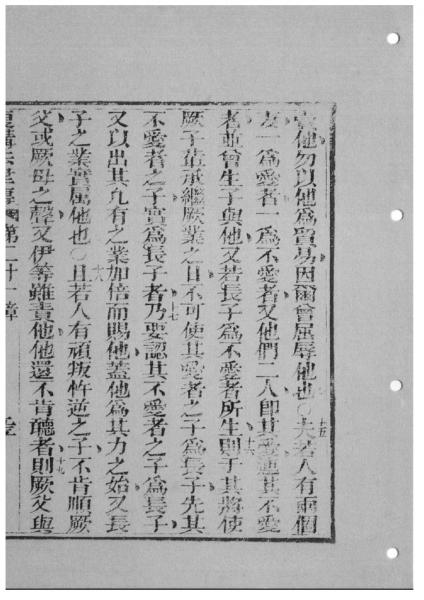 賣他勿以他為貿易因爾曾屈辱他也○夫若人有兩個
妻一為愛者一為不愛者又他們二人即其愛連其不愛
者並曾生子與他又若長子為不愛者所生則于其將使
厥子輩承繼厥業之日不可使其愛者之子為長子先其
不愛者之子實為長子者乃要認其不愛者之子為長子
又以出其凡有之業加倍而賜他蓋他為其力之始又長
子之業實属他也○且若人有頑叛忤逆之子不肯順厥
父或厥母之聲又伊等雖責他他還不肯聽者則厥父與
復講法律傳 第二十一章